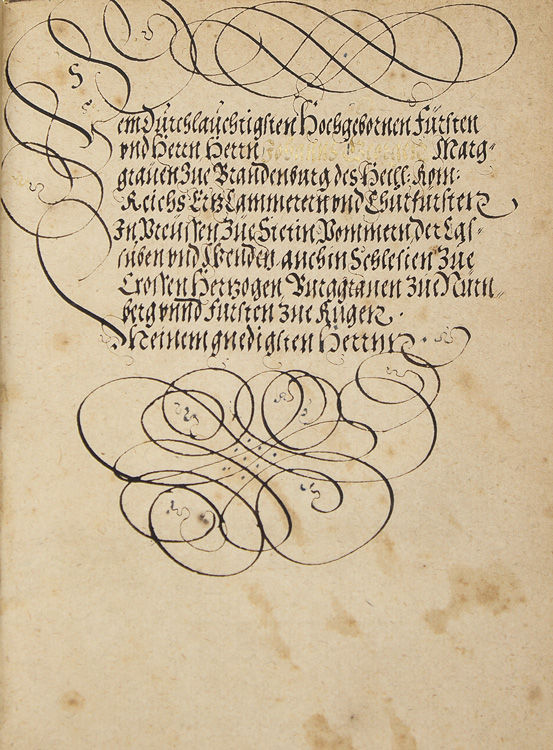 Dem Durchlauchtigsten Hochgebornen Fürsten
vnd Herrn Herrn Marg-
grauen Zue Brandenburg des Heyl: Röm:
Reichs Ertz Cammerern vnd Churfürsten
In Preussen Zue Stetin, Pommern, der Cas-
suben vnd Wenden, auch in Schlesien Zue
Crossen Hertzogen, Burggrauen Zue Nürn
berg vnnd Fürsten Zue Rügen.
Meinem gnedigsten Herrnn.